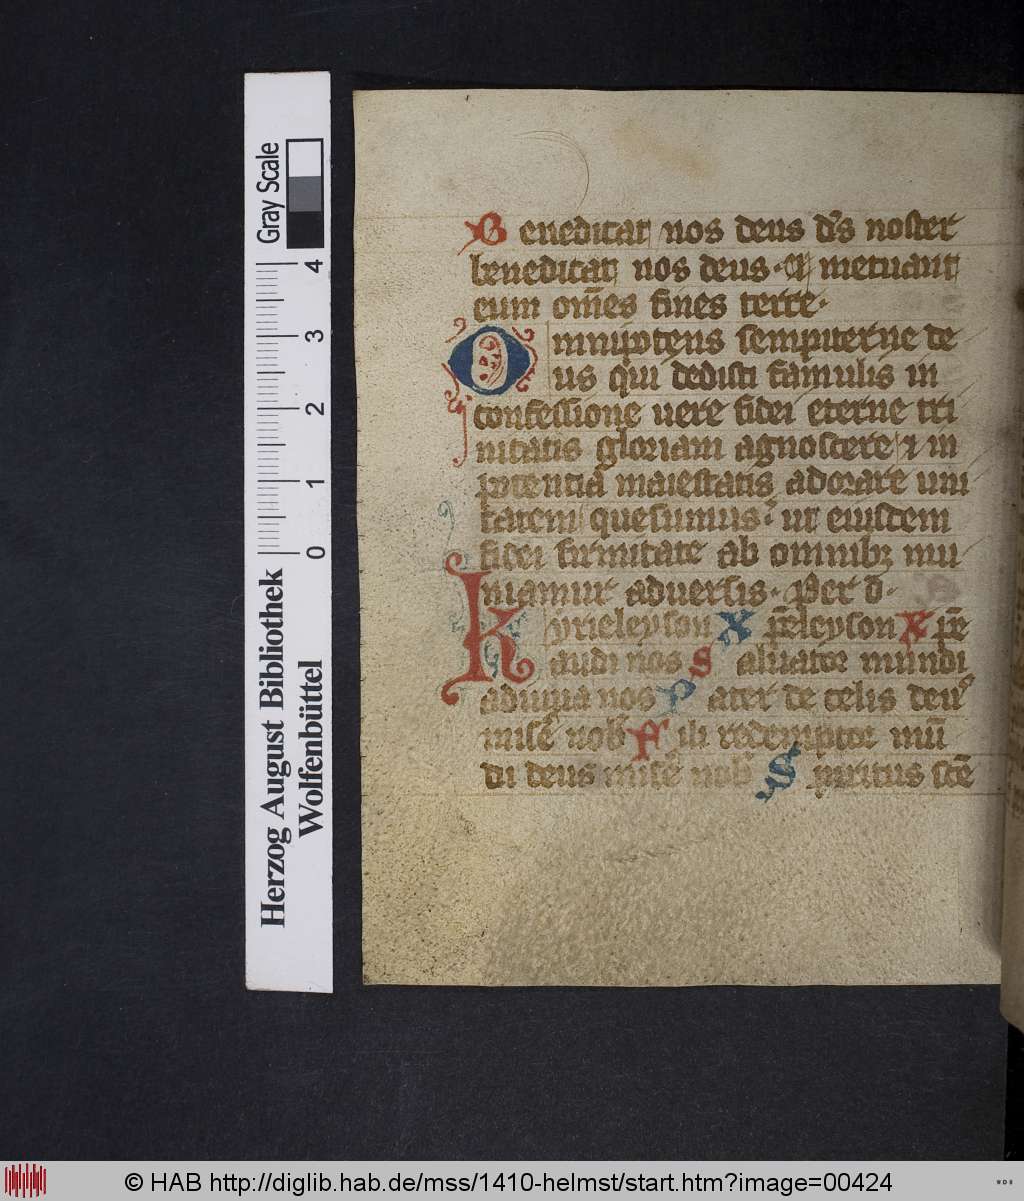 Gray Scale
4
3
2
1
0
Herzog August Bibliothek
Wolfenbüttel
Benedicat nos deus ds̄ noster
benedicat nos deus · et metuant
eum om̄es fines terre ·
Omnipotens sempiterne de
us qui dedisti famulis in
confessione uere fidei eterne tri
nitatis gloriam agnoscere ⁊ in
potentia maiestatis adorare uni
tatem quesumus · ut eiusdem
fidei firmitate ab omnibꝫ mu
niamur aduersis · Per d ·
Kyrieleyson Xpēleyson Xpē
audi nos Saluator mundi
adiuua nos Pater de celis deus
misē nob Fili redemptor mū
di deus misē Spiritus sctē
© HAB http://diglib.hab.de/mss/1410-helmst/start.htm?image=00424